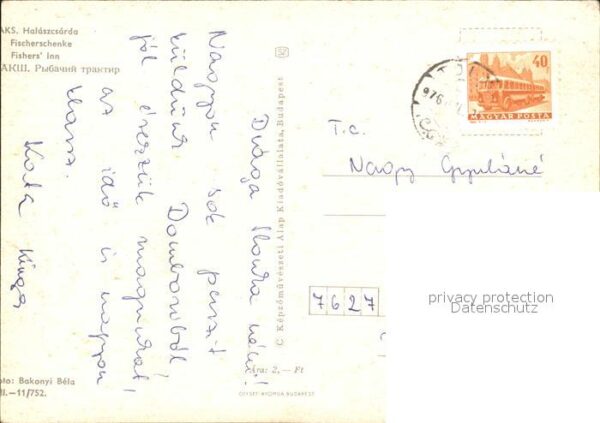 AKS. Halászcsárda
Fischerschenke
Fishers' Inn
АКШ. Рыбачий трактир
Drága Ilonka néni!
Nagyon sok puszit
küldünk Domboriból,
jól érezzük magunkat,
az idő is nagyon
klassz.
Kata Kinga
C Képzőművészeti Alap Kiadóvállalata, Budapest
40
MAGYAR POSTA
976
T.c.
Nagy Gyuláné
7627
privacy protection
Datenschutz
Ára: 2,— Ft
OFFSET NYOMDA BUDAPEST
oto: Bakonyi Béla
II.—11/752.